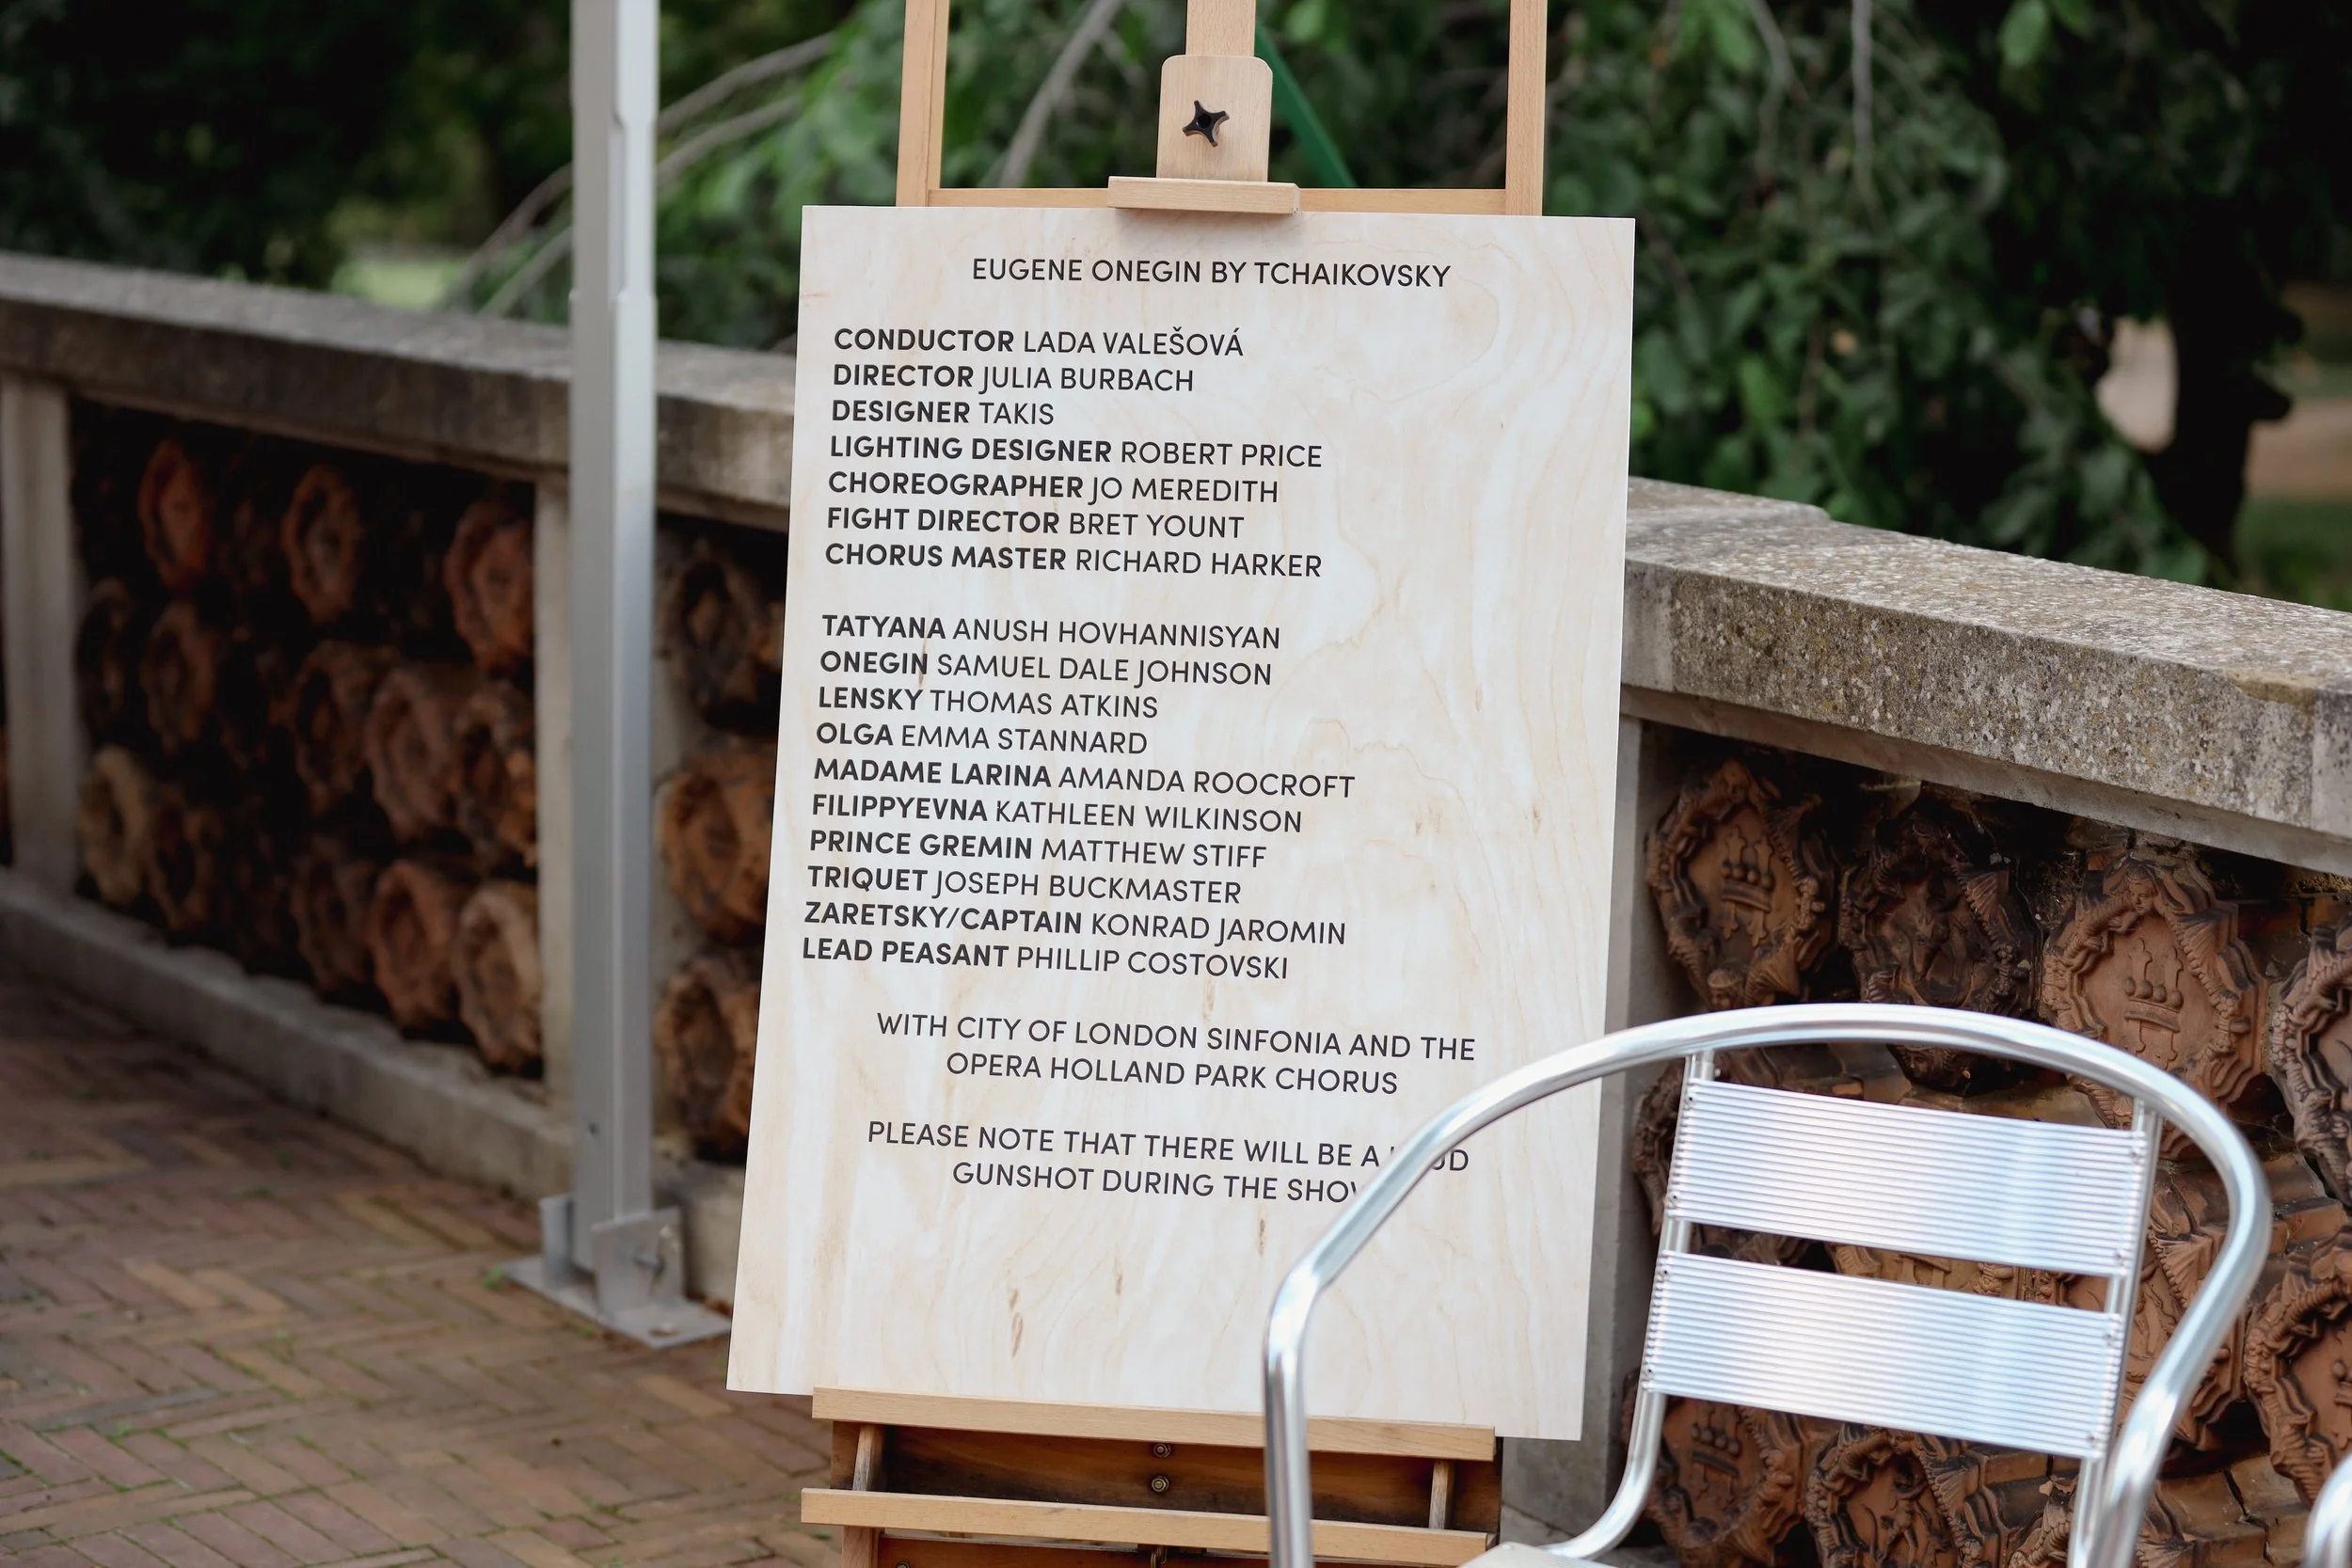 EUGENE ONEGIN BY TCHAIKOVSKY
CONDUCTOR LADA VALEŠOVÁ
DIRECTOR JULIA BURBACH
DESIGNER TAKIS
LIGHTING DESIGNER ROBERT PRICE
CHOREOGRAPHER JO MEREDITH
FIGHT DIRECTOR BRET YOUNT
CHORUS MASTER RICHARD HARKER
TATYANA ANUSH HOVHANNISYAN
ONEGIN SAMUEL DALE JOHNSON
LENSKY THOMAS ATKINS
OLGA EMMA STANNARD
MADAME LARINA AMANDA ROOCROFT
FILIPPYEVNA KATHLEEN WILKINSON
PRINCE GREMIN MATTHEW STIFF
TRIQUET JOSEPH BUCKMASTER
ZARETSKY/CAPTAIN KONRAD JAROMIN
LEAD PEASANT PHILLIP COSTOVSKI
WITH CITY OF LONDON SINFONIA AND THE
OPERA HOLLAND PARK CHORUS
PLEASE NOTE THAT THERE WILL BE A
GUNSHOT DURING THE